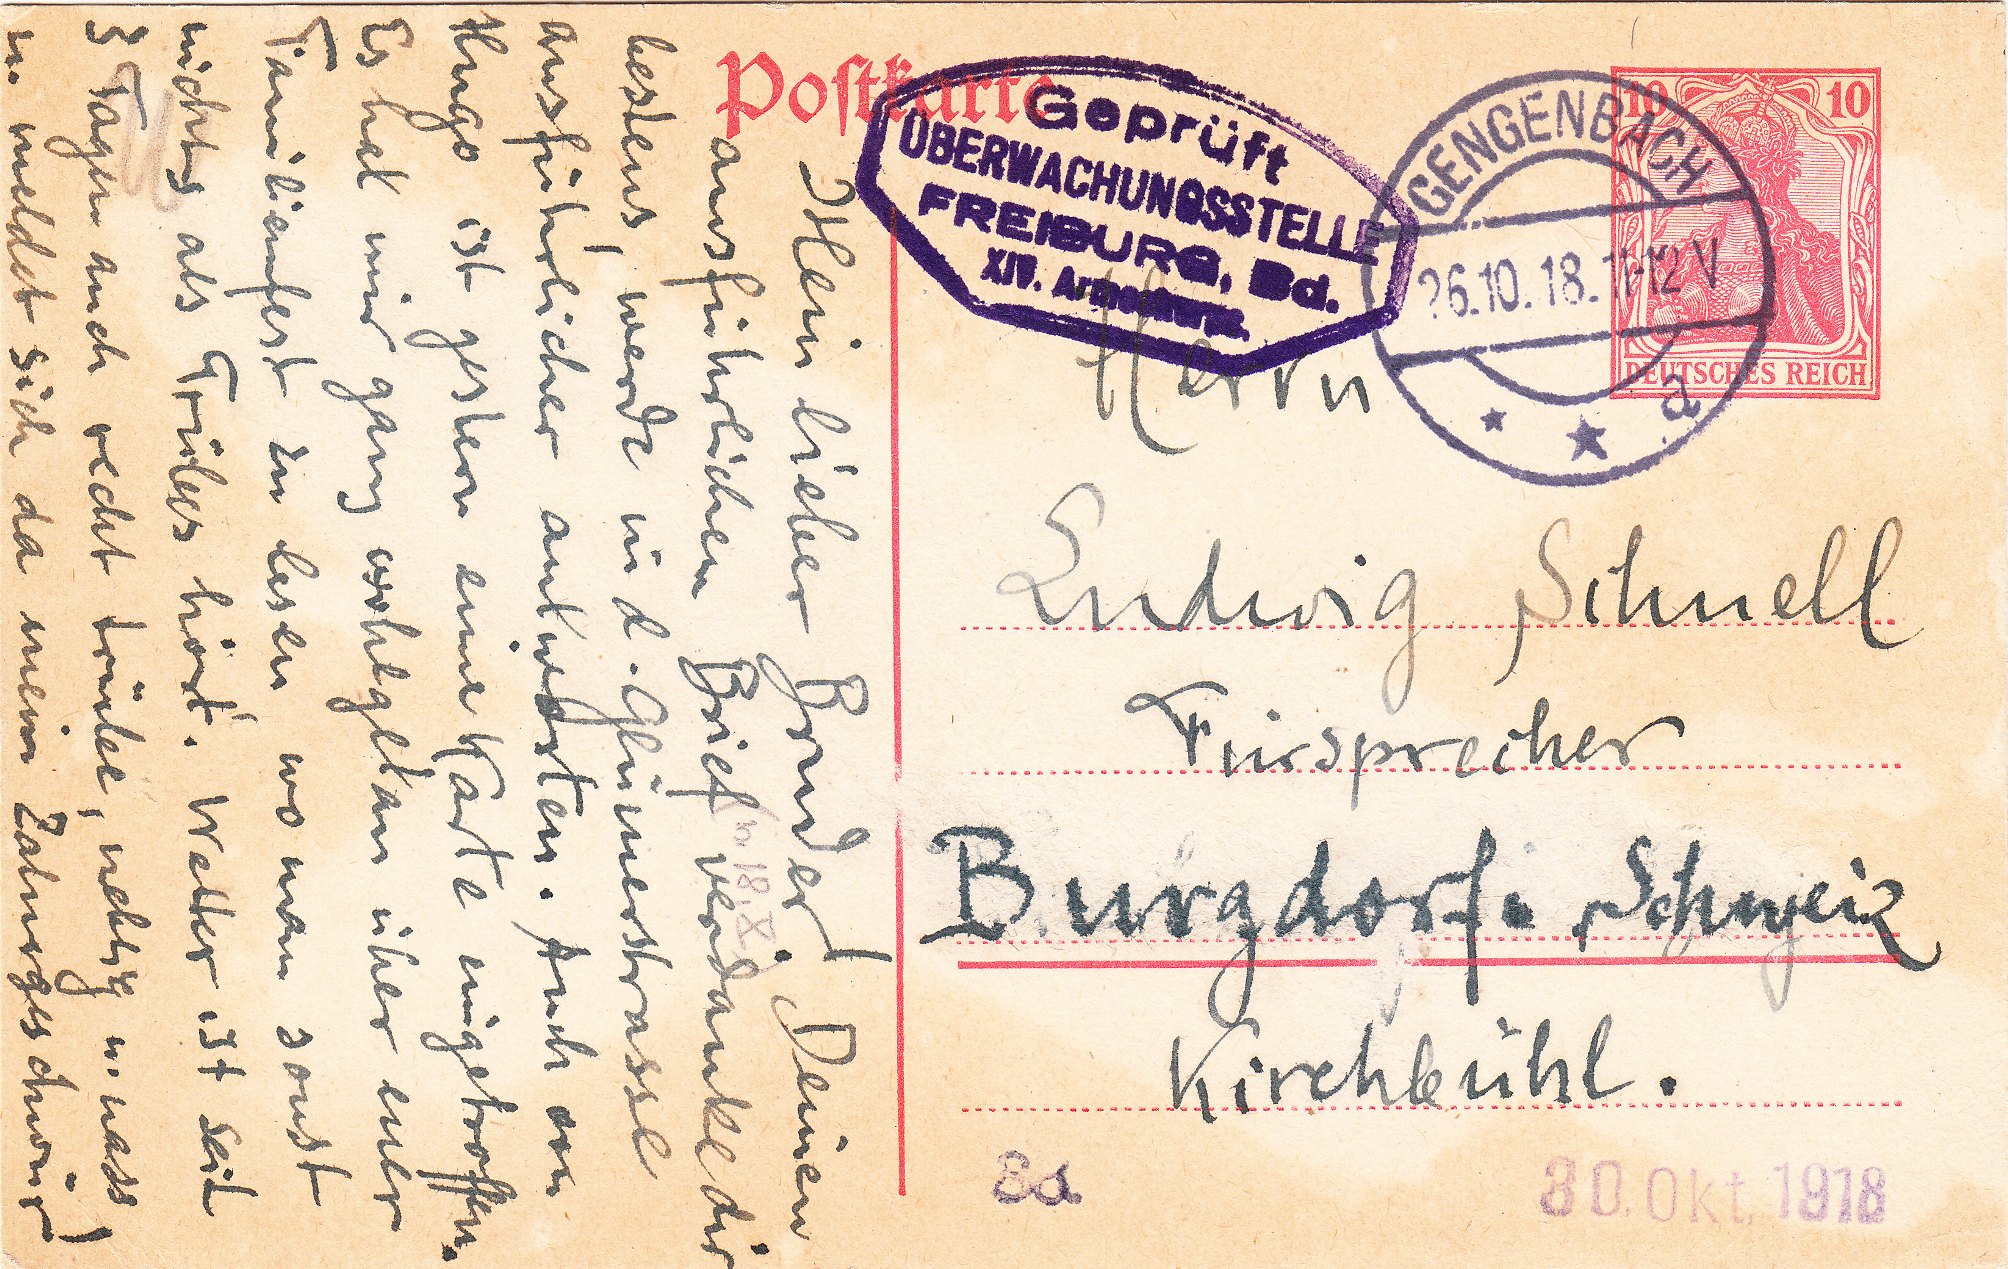 Postkarte
Geprüft
ÜBERWACHUNGSSTELLE
FREIBURG, Bd.
XIV. Armeekorps.
GENGENBACH
26.10.18.11-12 V
a
10 10
DEUTSCHES REICH
Herrn
Ludwig Schnell
Fürsprecher
Burgdorf. Schweiz
Kirchbühl.
8a
30. Okt. 1918
Mein lieber Bruder! Deinen
ausführlichen Brief verdanke dir
18.X.
bestens, werde in d. Glümerstrasse
ausführlicher antworten. Auch von
Hugo ist gestern eine Karte eingetroffen.
Es hat mir ganz wohlgetan über euer
Familienfest zu lesen wo man sonst
nichts als Trübes hört. Wetter ist seit
3 Tagen auch recht trübe, neblig u. nass!
u. meldet sich da mein Zahngeschwür